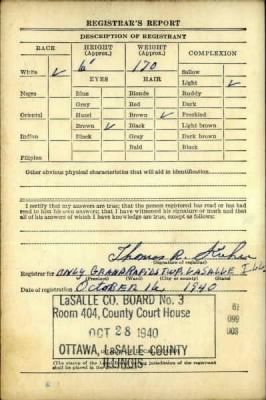 REGISTRAR'S REPORT
DESCRIPTION OF REGISTRANT
RACE HEIGHT (Approx.) WEIGHT (Approx.) COMPLEXION
White ✓ 6' 170 Sallow
EYES HAIR Light ✓
Negro Blue Blonde Ruddy
Gray Red Dark
Oriental Hazel Brown ✓ Freckled
Brown ✓ Black Light brown
Indian Black Gray Dark brown
Bald Black
Filipino
Other obvious physical characteristics that will aid in identification
I certify that my answers are true; that the person registered has read or has had
read to him his own answers; that I have witnessed his signature or mark and that
all of his answers of which I have knowledge are true, except as follows:
Thomas R.
(Signature of registrar)
Registrar for ONLY GRAND RAPIDS TWP. LASALLE ILL.
(Precinct) (Ward) (City or county) (State)
Date of registration October 16 1940
LaSALLE CO. BOARD No. 3
Room 404, County Court House
OCT 28 1940
OTTAWA, LaSALLE COUNTY
ILLINOIS
(The stamp of the Local Board having jurisdiction of the registrant
shall be placed in the above space.)
61
099
003